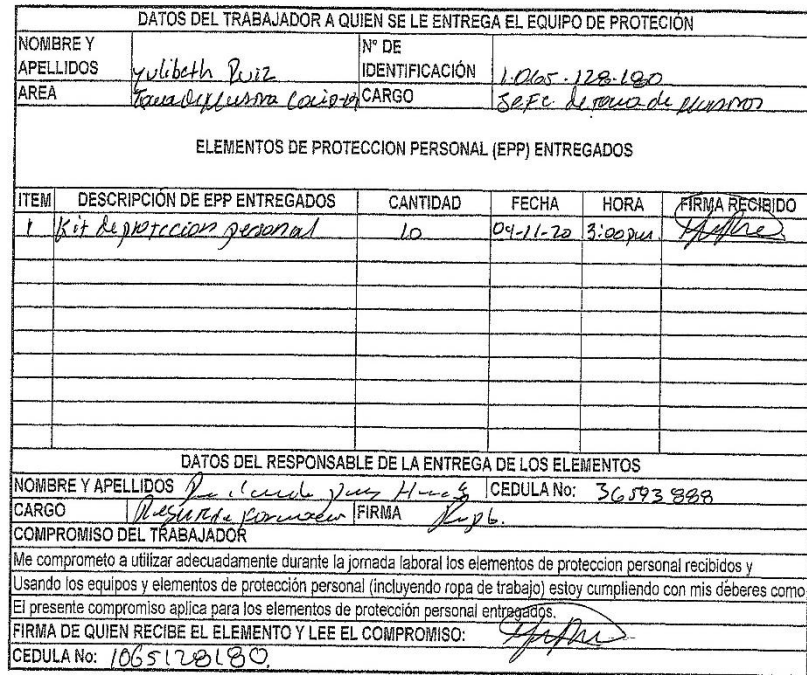 DATOS DEL TRABAJADOR A QUIEN SE LE ENTREGA EL EQUIPO DE PROTECIÓN
NOMBRE Y APELLIDOS yulibeth Ruiz N° DE IDENTIFICACIÓN 1.065.128.180
AREA CARGO Jefe de toma de
ELEMENTOS DE PROTECCION PERSONAL (EPP) ENTREGADOS
ITEM DESCRIPCIÓN DE EPP ENTREGADOS CANTIDAD FECHA HORA FIRMA RECIBIDO
1 Kit de proteccion personal 10 04-11-20 3:00 pm
DATOS DEL RESPONSABLE DE LA ENTREGA DE LOS ELEMENTOS
NOMBRE Y APELLIDOS CEDULA No: 36593888
CARGO FIRMA
COMPROMISO DEL TRABAJADOR
Me comprometo a utilizar adecuadamente durante la jornada laboral los elementos de proteccion personal recibidos y
Usando los equipos y elementos de protección personal (incluyendo ropa de trabajo) estoy cumpliendo con mis deberes como
El presente compromiso aplica para los elementos de protección personal entregados.
FIRMA DE QUIEN RECIBE EL ELEMENTO Y LEE EL COMPROMISO:
CEDULA No: 1065128180